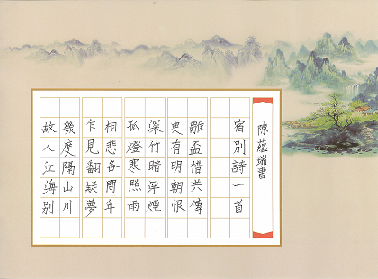 故人江海別
幾度隔山川
乍見翻疑夢
相悲各問年
孤燈寒照雨
深竹暗浮煙
更有明朝恨
離盃惜共傳
宿別詩一首